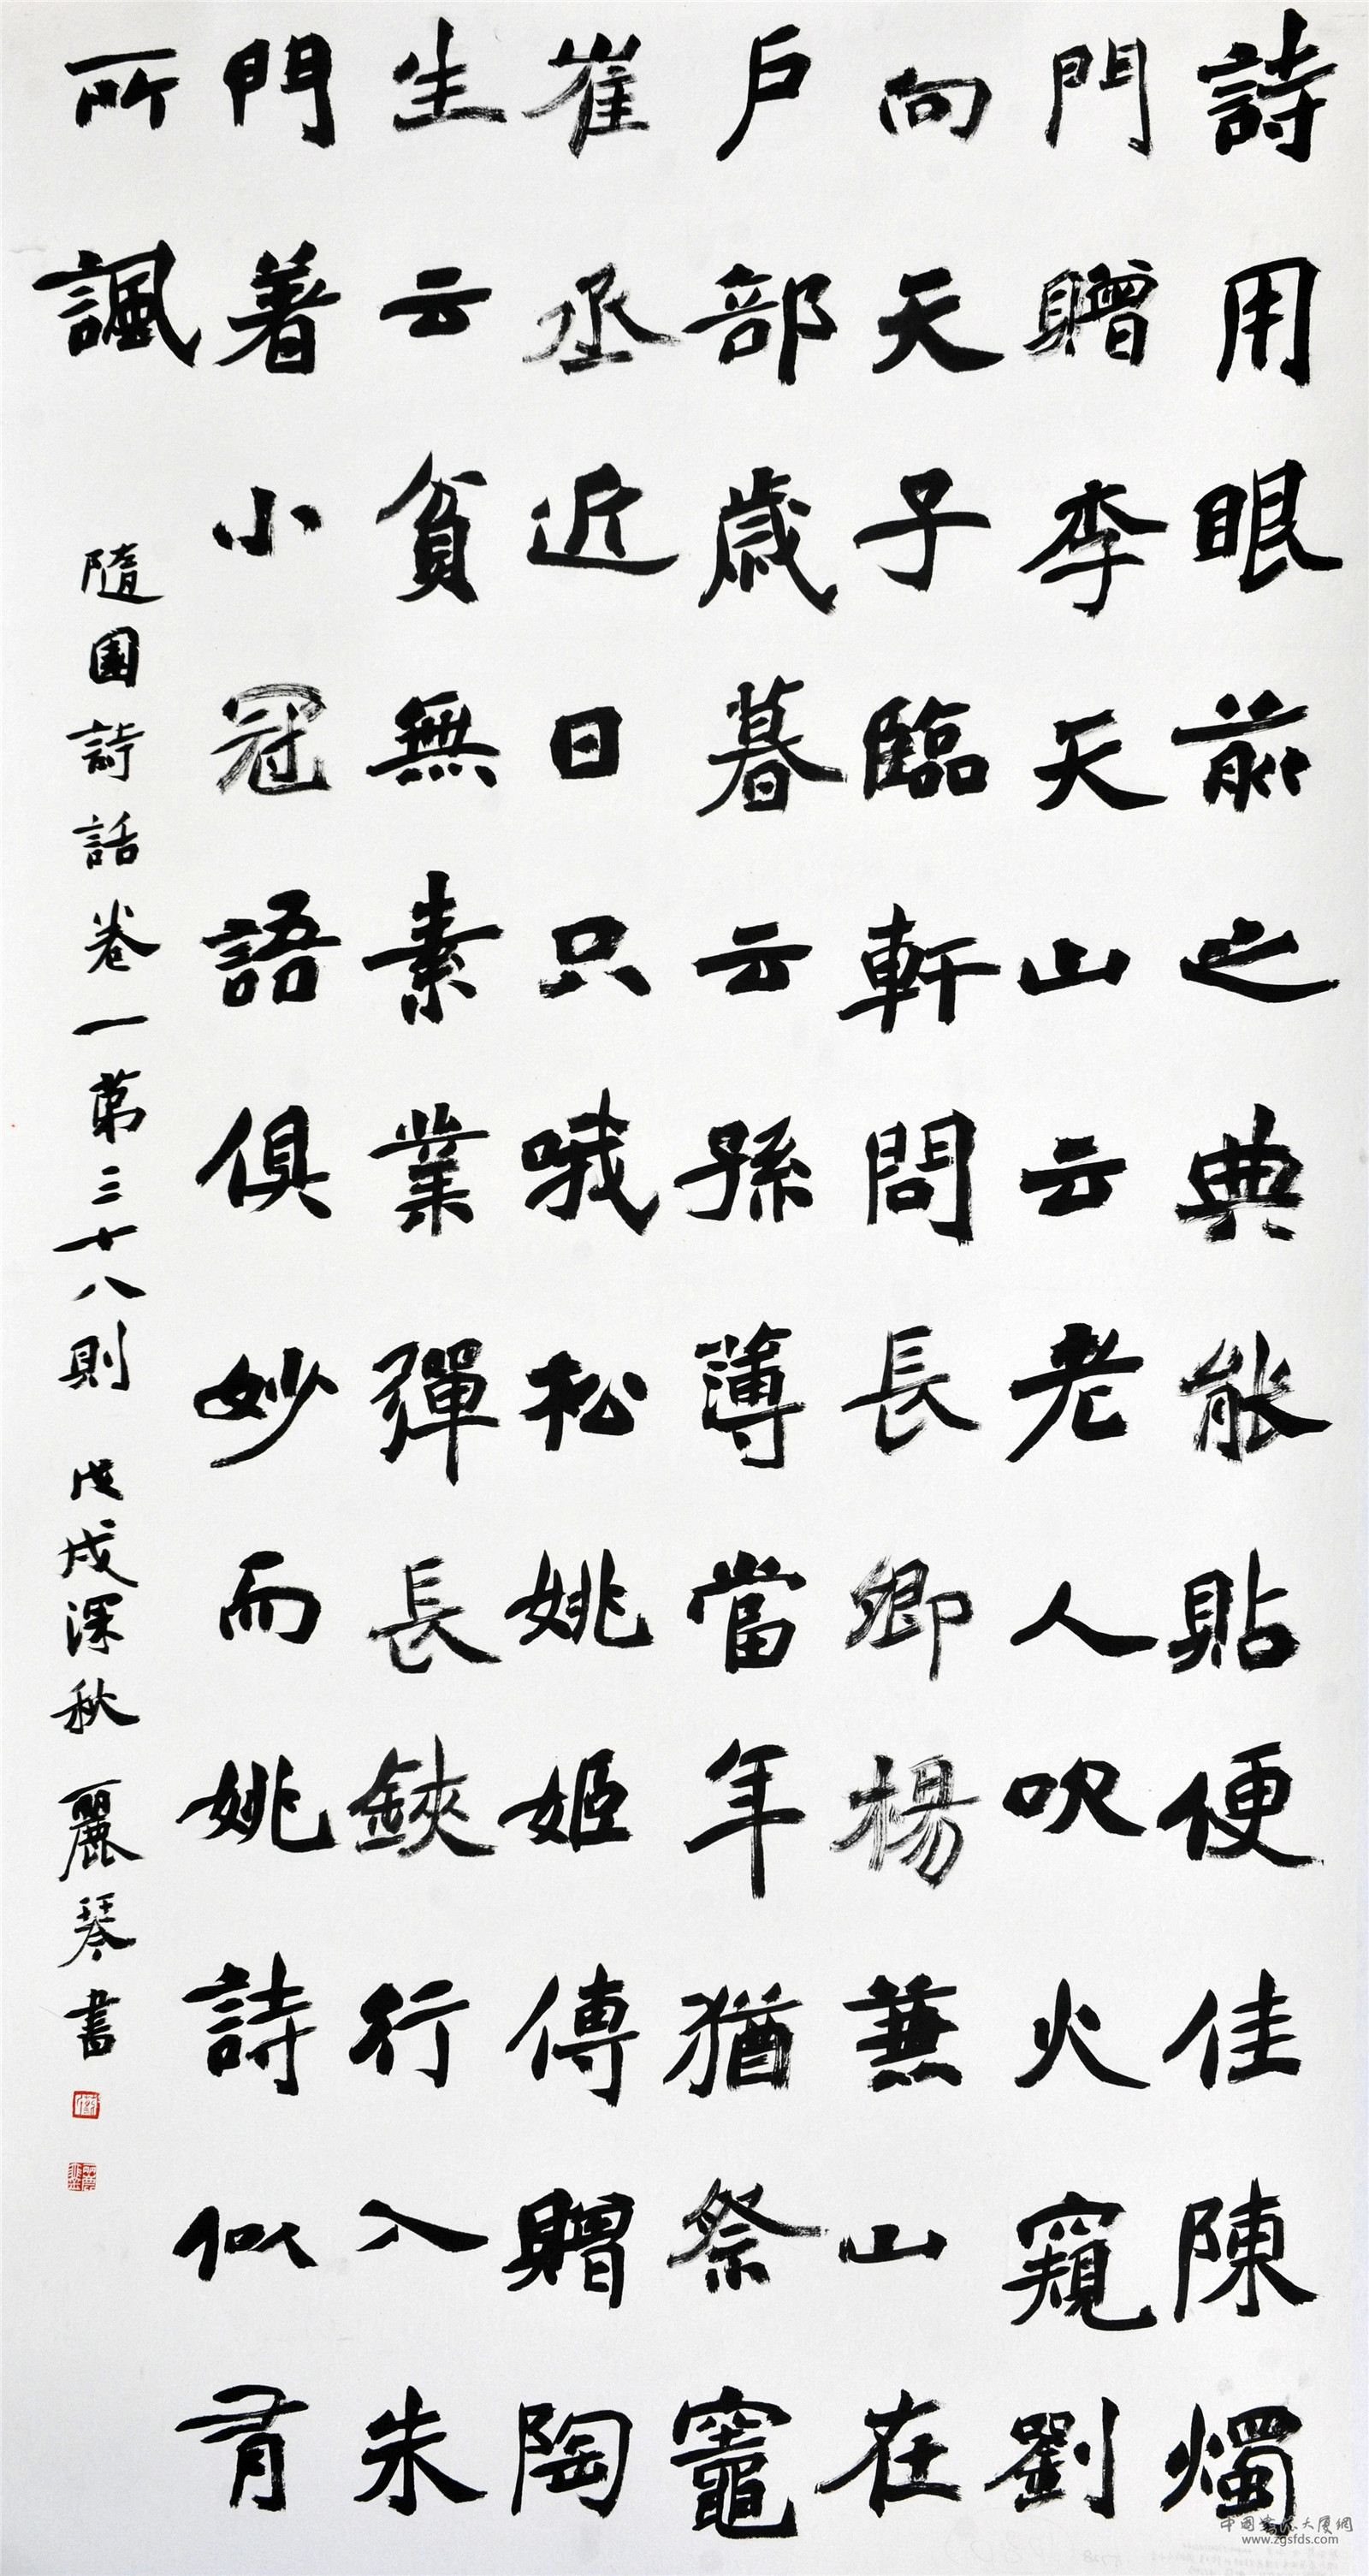 詩用眼前之典能貼便佳陳燭
門贈李天山云老人吹火窺劉
向天子臨軒問長卿楊蒹山在
戶部歲暮云孫薄當年猶祭竈
崔丞近日只哦松姚姬傳贈陶
生云貧無素業彈長鋏行入朱
門著小冠語俱妙而姚詩似有
所諷
隨園詩話卷一第三十八則 戊戌深秋 麗琴書
www.zgsfds.com